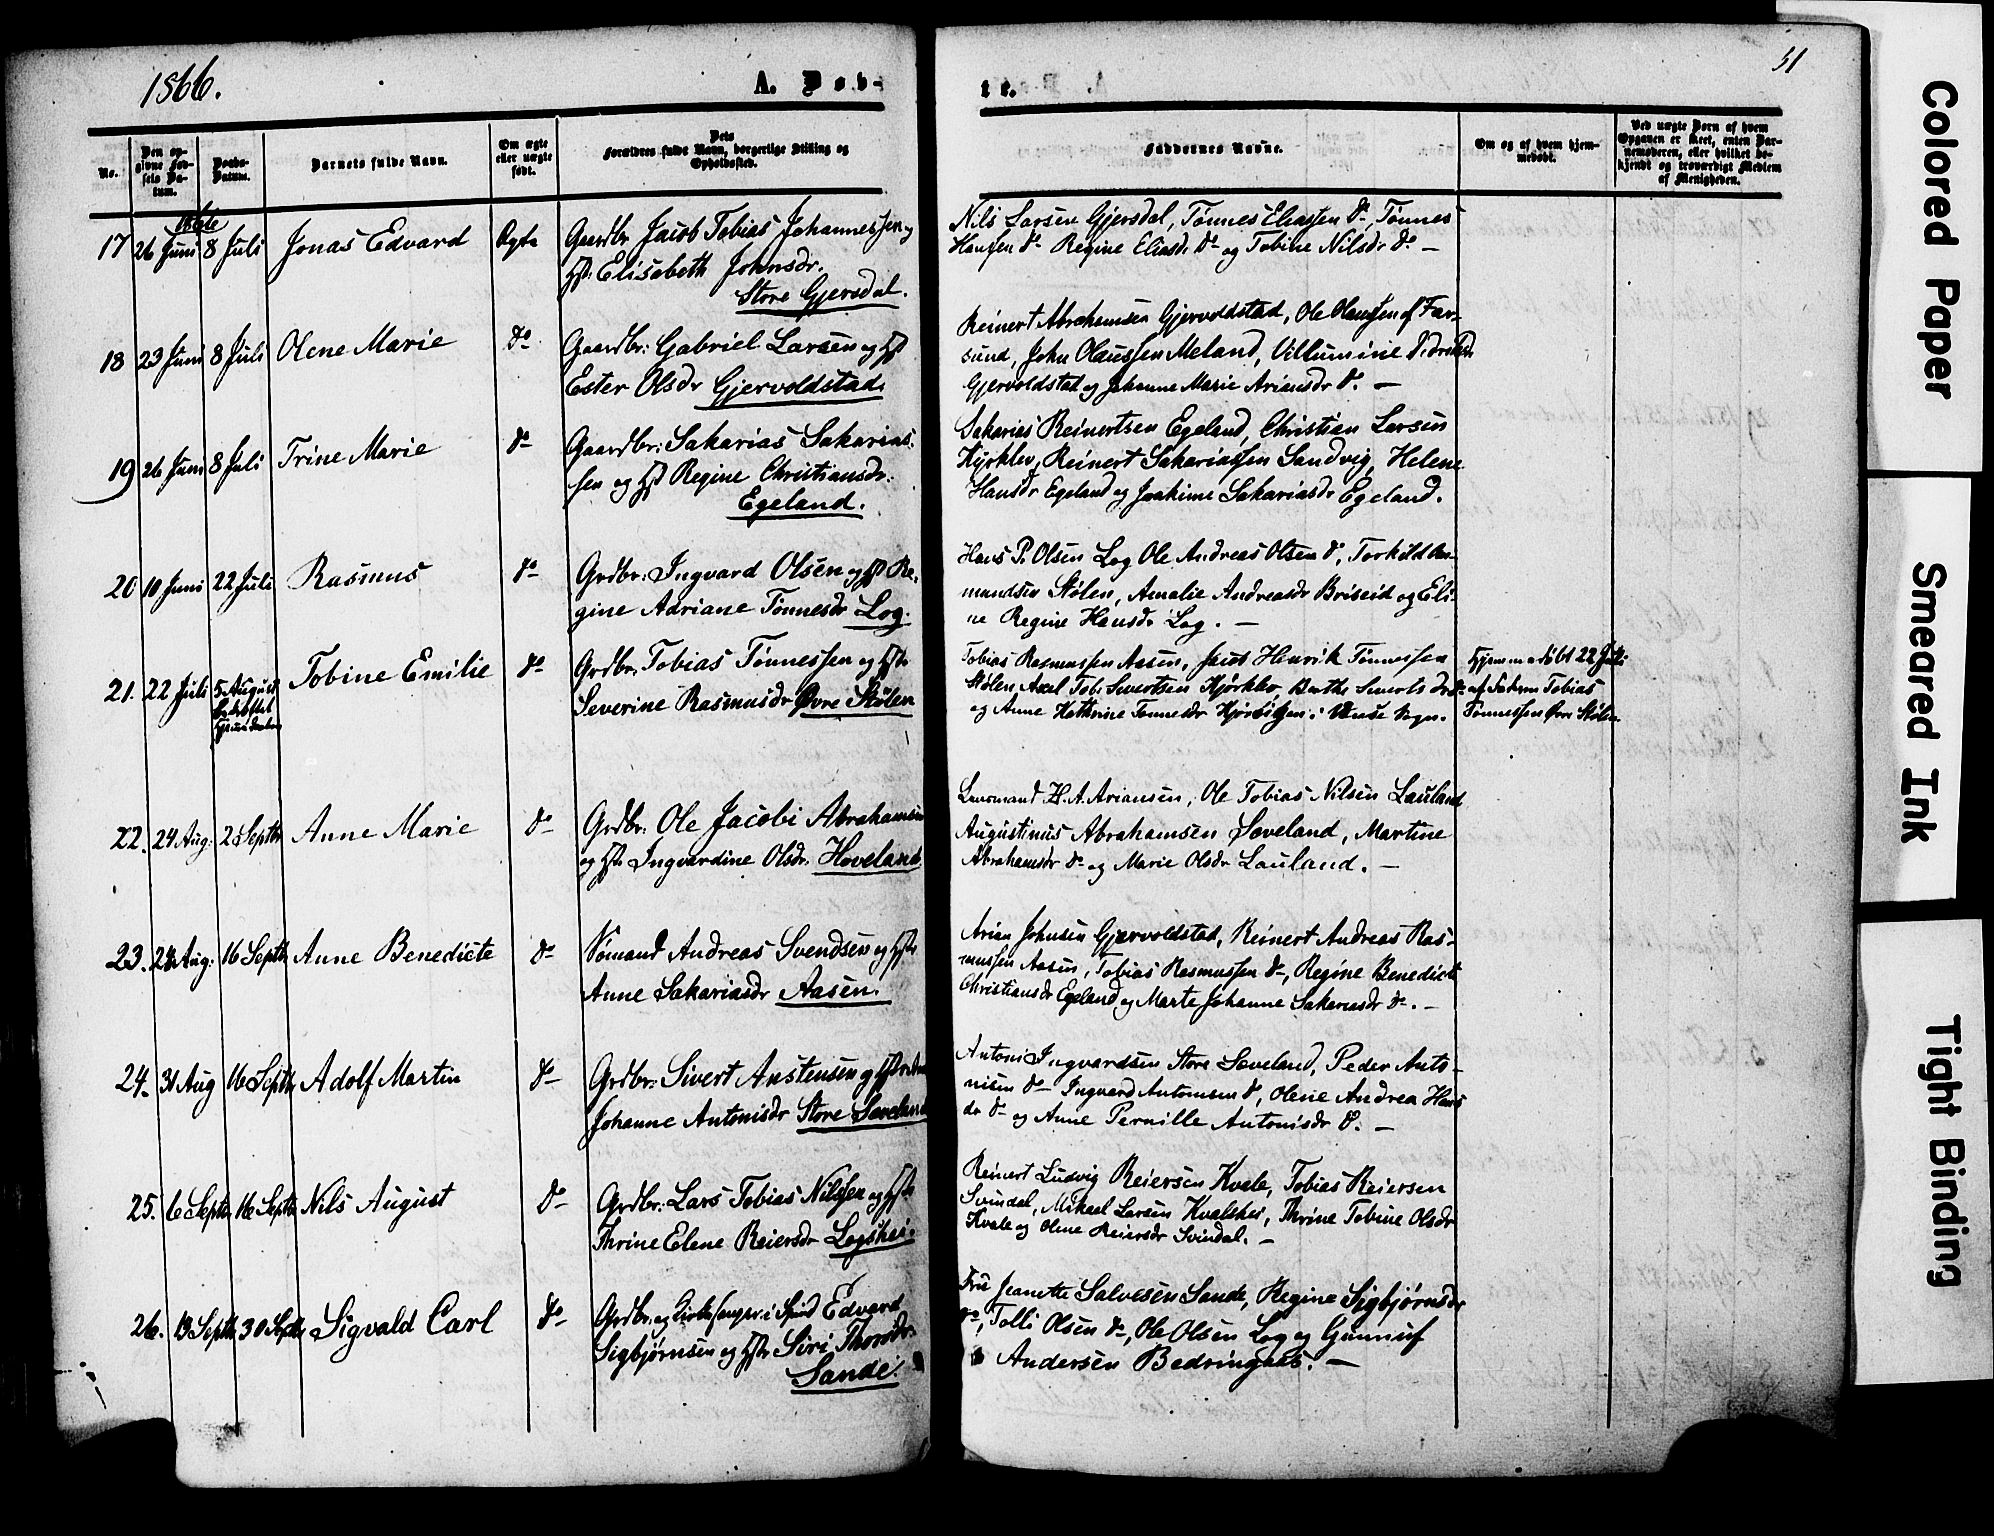 1866.
A. Døb-
te.
51
No.
Den op-
givne Fød-
sels Da-
tum.
Daabs-
Datum.
Barnets fulde Navn.
Om ægte
eller uægte
født.
Dets
Forældres fulde Navn, borgerlige Stilling og
Opholdssted.
Faddernes Navne.
Om og af hvem hjem-
medøbt.
Ved uægte Børn af hvem
Opgaven er skeet, enten Bar-
nemoderen, eller hvilket be-
kjendt og troværdigt Medlem
af Menigheden.
1866
17 26 Juni 8 Juli Jonas Edvard Ægte Gaardbr. Jacob Tobias Johannessen og
Hst: Elisabeth Johnsdr.
Store Gjersdal.
Nils Larsen Gjersdal, Tønnes Eliassen do, Tønnes
Hansen do Regine Eliasdr do og Tobine Nilsdr do —
18 23 Juni 8 Juli Olene Marie do Gaardbr: Gabriel Larsen og Hst
Ester Olsdr Gjervoldstad.
Reinert Abrahamsen Gjervoldstad, Ole Olaussen af Far-
sund, John Olaussen Meland, Villumine
Gjervoldstad og Johanne Marie Ariansdr do. —
19 26 Juni 8 Juli Trine Marie do Gaardbr: Sakarias Sakarias-
sen og Hst Regine Christiansdr.
Egeland.
Sakarias Reinertsen Egeland, Christian Larsen
Kjørklev, Reinert Sakariassen Sandvig, Helene
Hansdr Egeland og Joakime Sakariasdr Egeland.
20 10 Juni 22 Juli Rasmus do Grdbr: Ingvard Olsen og Hst Re-
gine Adriane Tønnesdr Log.
Hans P. Olsen Log Ole Andreas Olsen do, Torkild Aa-
mundsen Stølen, Amalie Andreasdr Briseid og Eli-
ne Regine Hansdr Log. —
21. 22 Juli 5 August Tobine Emilie do Grdbr. Tobias Tønnessen og Hst
Severine Rasmusdr Øvre Stølen
Tobias Rasmussen Aasen, Jacob Henrik Tønnessen
Stølen, Axel Tob. Sivertsen Kjørklev, Berthe Sivertsdr do
og Anne Kathrine Tønnesdr i Vanse Sogn.
Hjemmedøbt 22 Juli
af Faderen Tobias
Tønnessen Øvre Stølen
22. 24 Aug. 2 Septbr Anne Marie do Grdbr: Ole Jacobi Abrahamsen
og Hst Ingvardine Olsdr. Hoveland.
Lensmand H. A. Ariansen, Ole Tobias Nilsen Lauland
Augustinus Abrahamsen Loveland, Martine
Abrahamsdr do og Marie Olsdr Lauland. —
23. 28 Aug: 16 Septbr Anne Benedicte do Sømand Andreas Svendsen og Hst
Anne Sakariasdr Aasen.
Arian Johnsen Gjervoldstad, Reinert Andreas Ras-
mussen Aasen, Tobias Rasmussen do, Regine Benedicte
Christiansdr Egeland og Marte Johanne Sakariasdr do. —
24. 31 Aug 16 Septbr Adolf Martin do Grdbr: Sivert Anstensen og Hst
Johanne Antonisdr Store Loveland
Antoni Ingvardsen Store Loveland, Peder Anto-
nisen do Ingvard Antonisen do, Olene Andrea Hans
dr do og Anne Pernille Antonisdr do. —
25. 6 Septbr. 16 Septbr Nils August do Grdbr: Lars Tobias Nilssen og Hst
Thrine Elene Reiersdr Logshei.
Reinert Ludvig Reiersen Kvale, Tobias Reiersen
Svindal, Mikael Larsen Kvalshei, Thrine Tobine Olsdr
Kvale og Olene Reiersdr Svindal. —
26. 13 Septbr 30 Septbr Sigvald Carl do Grdbr. og Kirkesanger i Spind Edvard
Sigbjørnsen og Hst Siri Thorsdr.
Sande.
Fru Jeanette Salvesen Sande, Regine Sigbjørnsdr
do, Tolli Olsen do, Ole Olsen Log og Gunnuf
Andersen Bedringaas. —
Colored Paper
Smeared Ink
Tight Binding